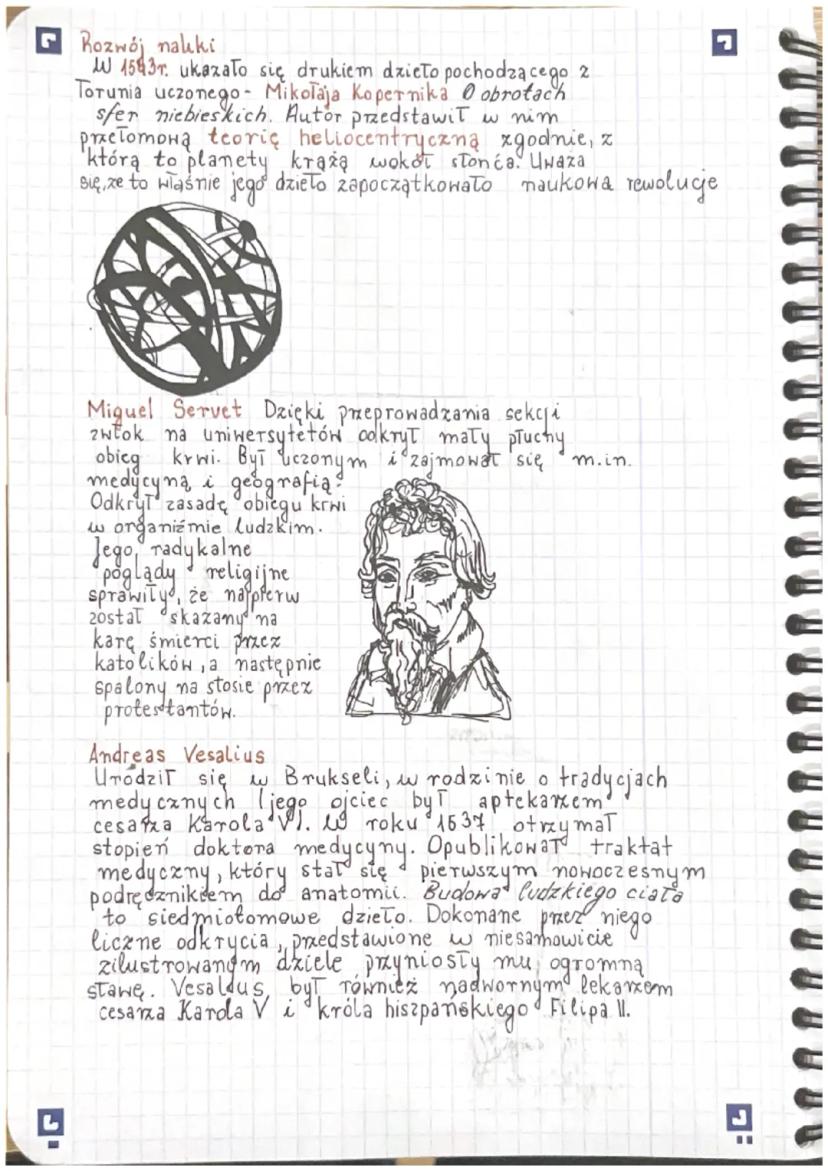 Rozwój nauki
W 1543r. ukazało się drukiem dzieło pochodzącego z
Torunia uczonego - Mikołaja Kopernika O obrotach
sfer niebieskich. Autor przedstawił w nim
przełomową teorię heliocentryczną zgodnie, z
którą to planety krążą wokół słońca. Uważa
się, że to właśnie jego dzieło zapoczątkowało naukową rewolucje
Miguel Servet Dzięki przeprowadzania sekcji
zwłok na uniwersytetów odkrył mały płucny
obieg krwi. Był uczonym i zajmował się m.in.
medycyną i geografią.
Odkrył zasadę obiegu krwi
w organiźmie ludzkim.
Jego radykalne
poglądy religijne
sprawiły, że najpierw
został skazany na
karę śmierci przez
katolików, a następnie
spalony na stosie przez
protestantów.
Andreas Vesalius
Urodził się w Brukseli, w rodzinie o tradycjach
medycznych (jego ojciec był aptekarzem
cesarza Karola V). W roku 1537 otrzymał
stopień doktora medycyny. Opublikował traktat
medyczny, który stał się pierwszym nowoczesnym
podręcznikiem do anatomii. Budowa ludzkiego ciała
to siedmiotomowe dzieło. Dokonane przez niego
liczne odkrycia, przedstawione w niesamowicie
zilustrowanym dziele przyniosły mu ogromną
sławę. Vesalius był również nadwornym lekarzem
cesarza Karola V i króla hiszpańskiego Filipa II.